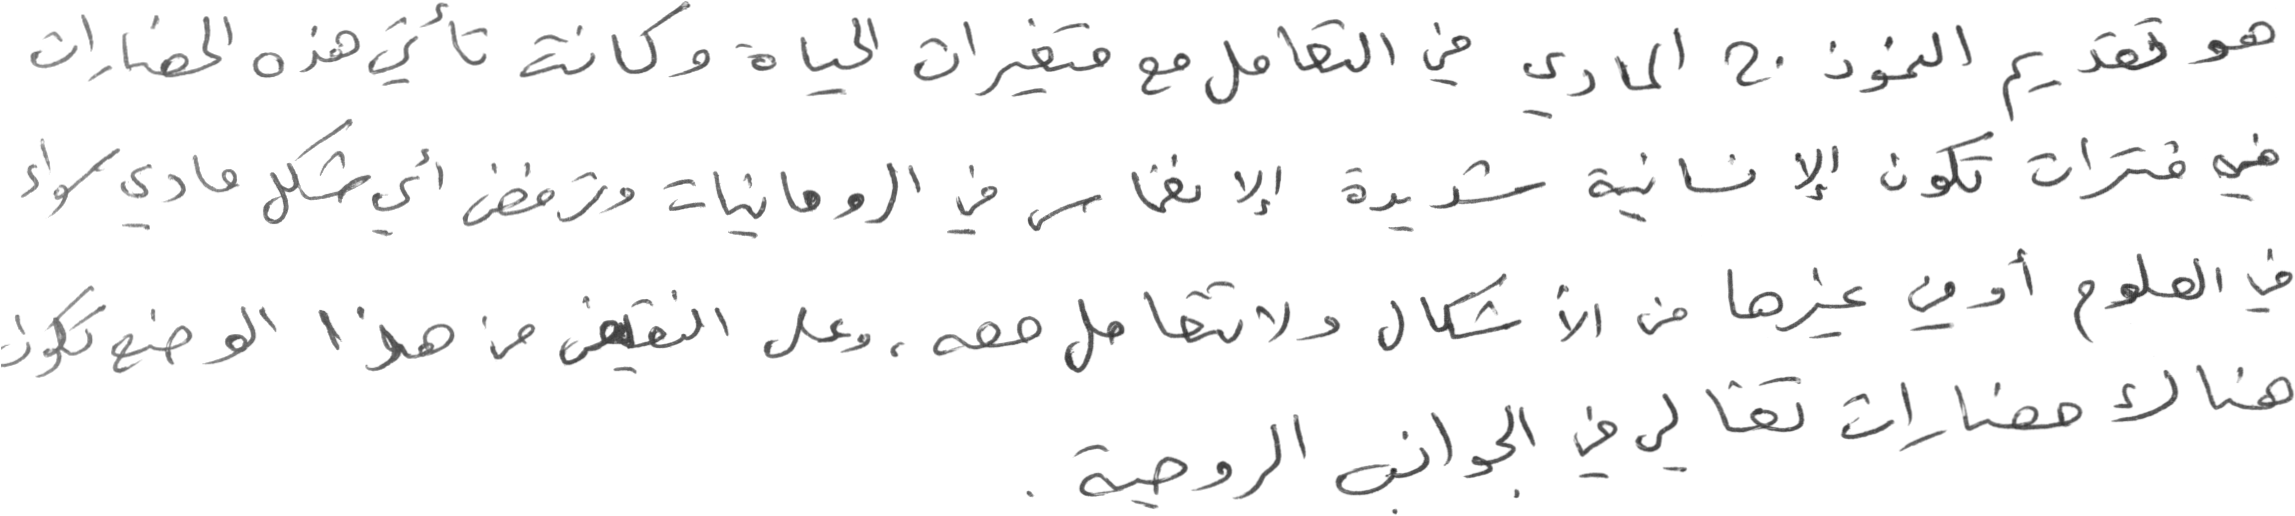 هو تقديم النموذج المادي في التعامل مع متغيرات الحياة وكانة تأتي هذه الحضارات
في فترات تكون الإنسانية شديدة الإنغماس في الروحانيات وترفض أي شكل مادي سواء
في العلوم أو في غيرها من الأشكال ولا تتعامل معه، وعلى النقيض من هذا الوضع تكون
هناك حضارات تغالي في الجوانب الروحية.